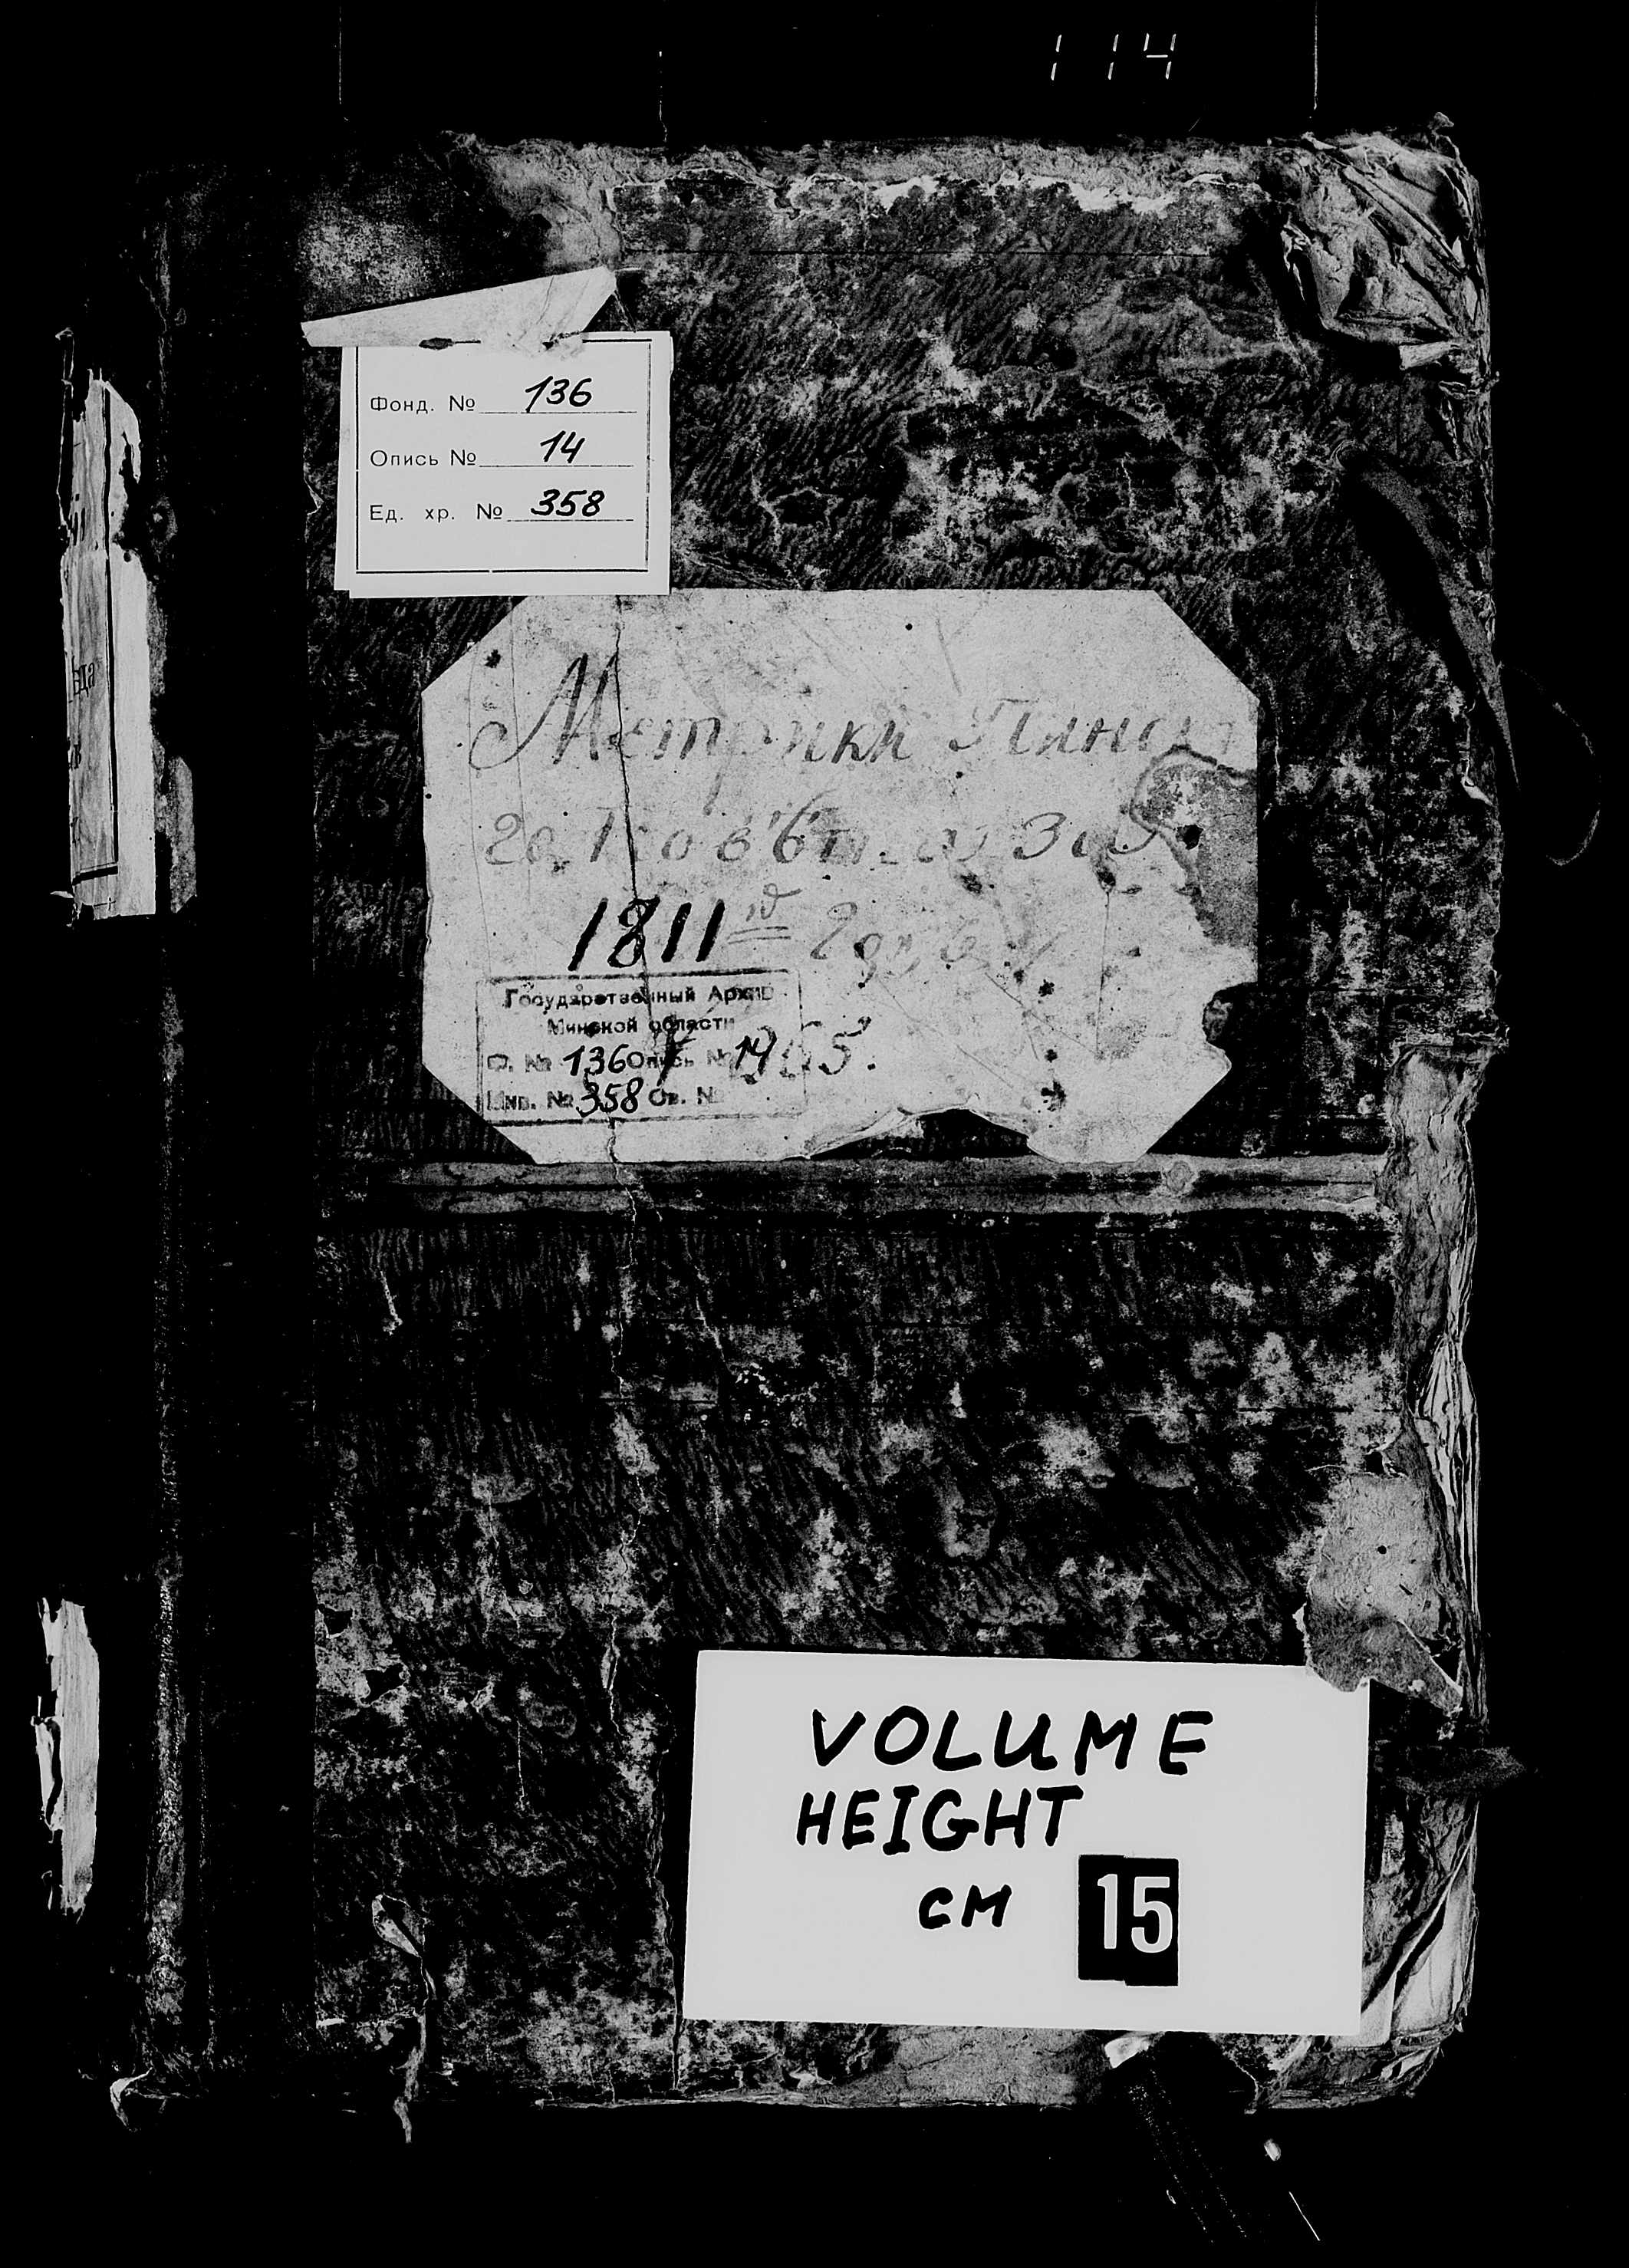 114
Фонд. № 136
Опись № 14
Ед. хр. № 358
Метрики Пинска
го
1811го года
Государственный Архив
Минской области
Ф. № 136 Опись № 14
Инв. № 358 Св. №
VOLUME
HEIGHT
CM 15